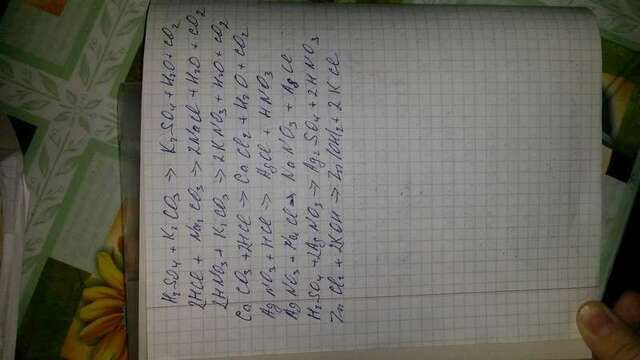 H₂SO₄ + K₂CO₃ → K₂SO₄ + H₂O + CO₂
2HCl + Na₂CO₃ → 2NaCl + H₂O + CO₂
2HNO₃ + K₂CO₃ → 2KNO₃ + H₂O + CO₂
CaCO₃ + 2HCl → CaCl₂ + H₂O + CO₂
AgNO₃ + HCl → AgCl + HNO₃
AgNO₃ + NaCl → NaNO₃ + AgCl
H₂SO₄ + 2AgNO₃ → Ag₂SO₄ + 2HNO₃
ZnCl₂ + 2KOH → Zn(OH)₂ + 2KCl